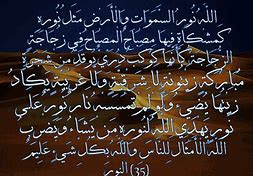 الله نور السموات والأرض مثل نوره
كمشكاة فيها مصباح المصباح في زجاجة
الزجاجة كأنها كوكب دري يوقد من شجرة
مباركة زيتونة لا شرقية ولا غربية يكاد
زيتها يضيء ولو لم تمسسه نار نور على
نور يهدي الله لنوره من يشاء ويضرب
الله الأمثال للناس والله بكل شيء عليم
(35) النور